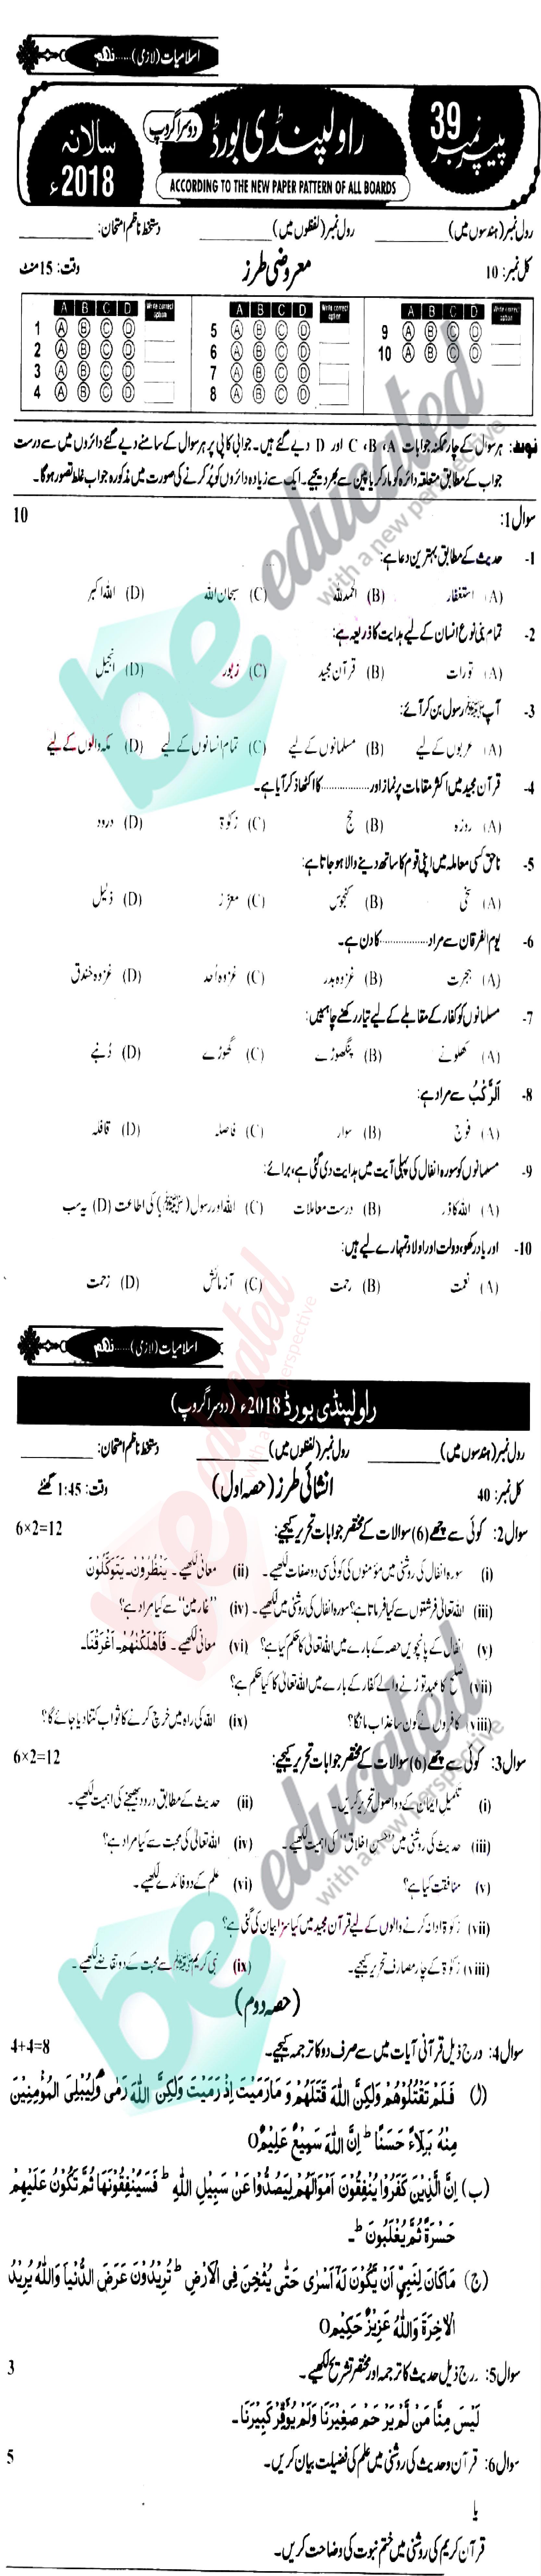 اسلامیات (لازمی)......نہم
پیپر نمبر 39
راولپنڈی بورڈ
دوسرا گروپ
سالانہ 2018ء
ACCORDING TO THE NEW PAPER PATTERN OF ALL BOARDS
رول نمبر (ہندسوں میں) ____________ رول نمبر (لفظوں میں) ____________ دستخط ناظم امتحان: ____________
کل نمبر: 10 معروضی طرز وقت: 15 منٹ
A B C D Write correct option A B C D Write correct option A B C D Write correct option
1 A B C D 5 A B C D 9 A B C D
2 A B C D 6 A B C D 10 A B C D
3 A B C D 7 A B C D
4 A B C D 8 A B C D
نوٹ: ہر سوال کے چار ممکنہ جوابات A، B، C اور D دیے گئے ہیں۔ جوابی کاپی پر ہر سوال کے سامنے دیے گئے دائروں میں سے درست
جواب کے مطابق متعلقہ دائرہ کو مارکر یا پین سے بھر دیجیے۔ ایک سے زیادہ دائروں کو پُر کرنے کی صورت میں مذکورہ جواب غلط تصور ہوگا۔
سوال 1: 10
1- حدیث کے مطابق بہترین دعا ہے:
(A) استغفار (B) الحمدللہ (C) سبحان اللہ (D) اللہ اکبر
2- تمام بنی نوع انسان کے لیے ہدایت کا ذریعہ ہے:
(A) تورات (B) قرآن مجید (C) زبور (D) انجیل
3- آپ ﷺ رسول بن کر آئے:
(A) عربوں کے لیے (B) مسلمانوں کے لیے (C) تمام انسانوں کے لیے (D) مکہ والوں کے لیے
4- قرآن مجید میں اکثر مقامات پر نماز اور ............... کا اکٹھا ذکر آیا ہے۔
(A) روزہ (B) حج (C) زکوٰۃ (D) درود
5- ناحق کسی معاملہ میں اپنی قوم کا ساتھ دینے والا ہو جاتا ہے:
(A) سخی (B) کنجوس (C) معزز (D) ذلیل
6- یوم الفرقان سے مراد ............... کا دن ہے۔
(A) ہجرت (B) غزوہ بدر (C) غزوہ اُحد (D) غزوہ خندق
7- مسلمانوں کو کفار کے مقابلے کے لیے تیار رکھنے چاہئیں:
(A) کھلونے (B) پنگھوڑے (C) گھوڑے (D) دُنبے
8- اَلرَّكْبُ سے مراد ہے:
(A) فوج (B) سوار (C) فاصلہ (D) قافلہ
9- مسلمانوں کو سورہ انفال کی پہلی آیت میں ہدایت دی گئی ہے، برائے:
(A) اللہ کا ڈر (B) درست معاملات (C) اللہ اور رسول (ﷺ) کی اطاعت (D) یہ سب
10- اور یاد رکھو، دولت اور اولاد تمہارے لیے ہیں:
(A) نعمت (B) رحمت (C) آزمائش (D) زحمت
اسلامیات (لازمی)......نہم
راولپنڈی بورڈ 2018ء (دوسرا گروپ)
رول نمبر (ہندسوں میں) ____________ رول نمبر (لفظوں میں) ____________ دستخط ناظم امتحان: ____________
کل نمبر: 40 انشائی طرز (حصہ اول) وقت: 1:45 گھنٹے
سوال 2: کوئی سے چھے (6) سوالات کے مختصر جوابات تحریر کیجیے: 6×2=12
(i) سورہ انفال کی روشنی میں مؤمنوں کی کوئی سی دو صفات لکھیے۔ (ii) معانی لکھیے۔ يَنْظُرُوْنَ۔ يَتَوَكَّلُوْنَ
(iii) اللہ تعالیٰ فرشتوں سے کیا فرماتا ہے؟ سورہ انفال کی روشنی میں لکھیے۔ (iv) "غارمین" سے کیا مراد ہے؟
(v) انفال کے پانچویں حصہ کے بارے میں اللہ تعالیٰ کا حکم کیا ہے؟ (vi) معانی لکھیے۔ فَاَهْلَكْنٰهُمْ۔ اَغْرَقْنَا۔
(vii) صلح کا عہد توڑنے والے کفار کے بارے میں اللہ تعالیٰ کا کیا حکم ہے؟
(viii) کافروں نے کون سا عذاب مانگا؟ (ix) اللہ کی راہ میں خرچ کرنے کا ثواب کتنا دیا جائے گا؟
سوال 3: کوئی سے چھے (6) سوالات کے مختصر جوابات تحریر کیجیے: 6×2=12
(i) تکمیل ایمان کے دو اصول تحریر کریں۔ (ii) حدیث کے مطابق درود بھیجنے کی اہمیت لکھیے۔
(iii) حدیث کی روشنی میں "حسن اخلاق" کی اہمیت لکھیے۔ (iv) اللہ تعالیٰ کی محبت سے کیا مراد ہے؟
(v) منافقت کیا ہے؟ (vi) علم کے دو فائدے لکھیے۔
(vii) زکوٰۃ ادا نہ کرنے والوں کے لیے قرآن مجید میں کیا سزا بیان کی گئی ہے؟
(viii) زکوٰۃ کے چار مصارف تحریر کیجیے۔ (ix) نبی کریم ﷺ سے محبت کے دو تقاضے لکھیے۔
(حصہ دوم)
سوال 4: درج ذیل قرآنی آیات میں سے صرف دو کا ترجمہ کیجیے۔ 4+4=8
(ا) فَلَمْ تَقْتُلُوْهُمْ وَلٰكِنَّ اللّٰهَ قَتَلَهُمْ وَ مَا رَمَيْتَ اِذْ رَمَيْتَ وَلٰكِنَّ اللّٰهَ رَمٰى وَلِيُبْلِىَ الْمُؤْمِنِيْنَ
مِنْهُ بَلَاءً حَسَنًا ط اِنَّ اللّٰهَ سَمِيْعٌ عَلِيْمٌ O
(ب) اِنَّ الَّذِيْنَ كَفَرُوْا يُنْفِقُوْنَ اَمْوَالَهُمْ لِيَصُدُّوْا عَنْ سَبِيْلِ اللّٰهِ ط فَسَيُنْفِقُوْنَهَا ثُمَّ تَكُوْنُ عَلَيْهِمْ
حَسْرَةً ثُمَّ يُغْلَبُوْنَ ط۔
(ج) مَا كَانَ لِنَبِىٍّ اَنْ يَّكُوْنَ لَهٗ اَسْرٰى حَتّٰى يُثْخِنَ فِى الْاَرْضِ ط تُرِيْدُوْنَ عَرَضَ الدُّنْيَا وَاللّٰهُ يُرِيْدُ
الْاٰخِرَةَ وَاللّٰهُ عَزِيْزٌ حَكِيْمٌ O
سوال 5: درج ذیل حدیث کا ترجمہ اور مختصر تشریح لکھیے۔ 3
لَيْسَ مِنَّا مَنْ لَّمْ يَرْحَمْ صَغِيْرَنَا وَلَمْ يُوَقِّرْ كَبِيْرَنَا۔
سوال 6: قرآن و حدیث کی روشنی میں علم کی فضیلت بیان کریں۔ 5
یا
قرآن کریم کی روشنی میں ختم نبوت کی وضاحت کریں۔
be educated
with a new perspective
be educated
with a new perspective
be educated
with a new perspective